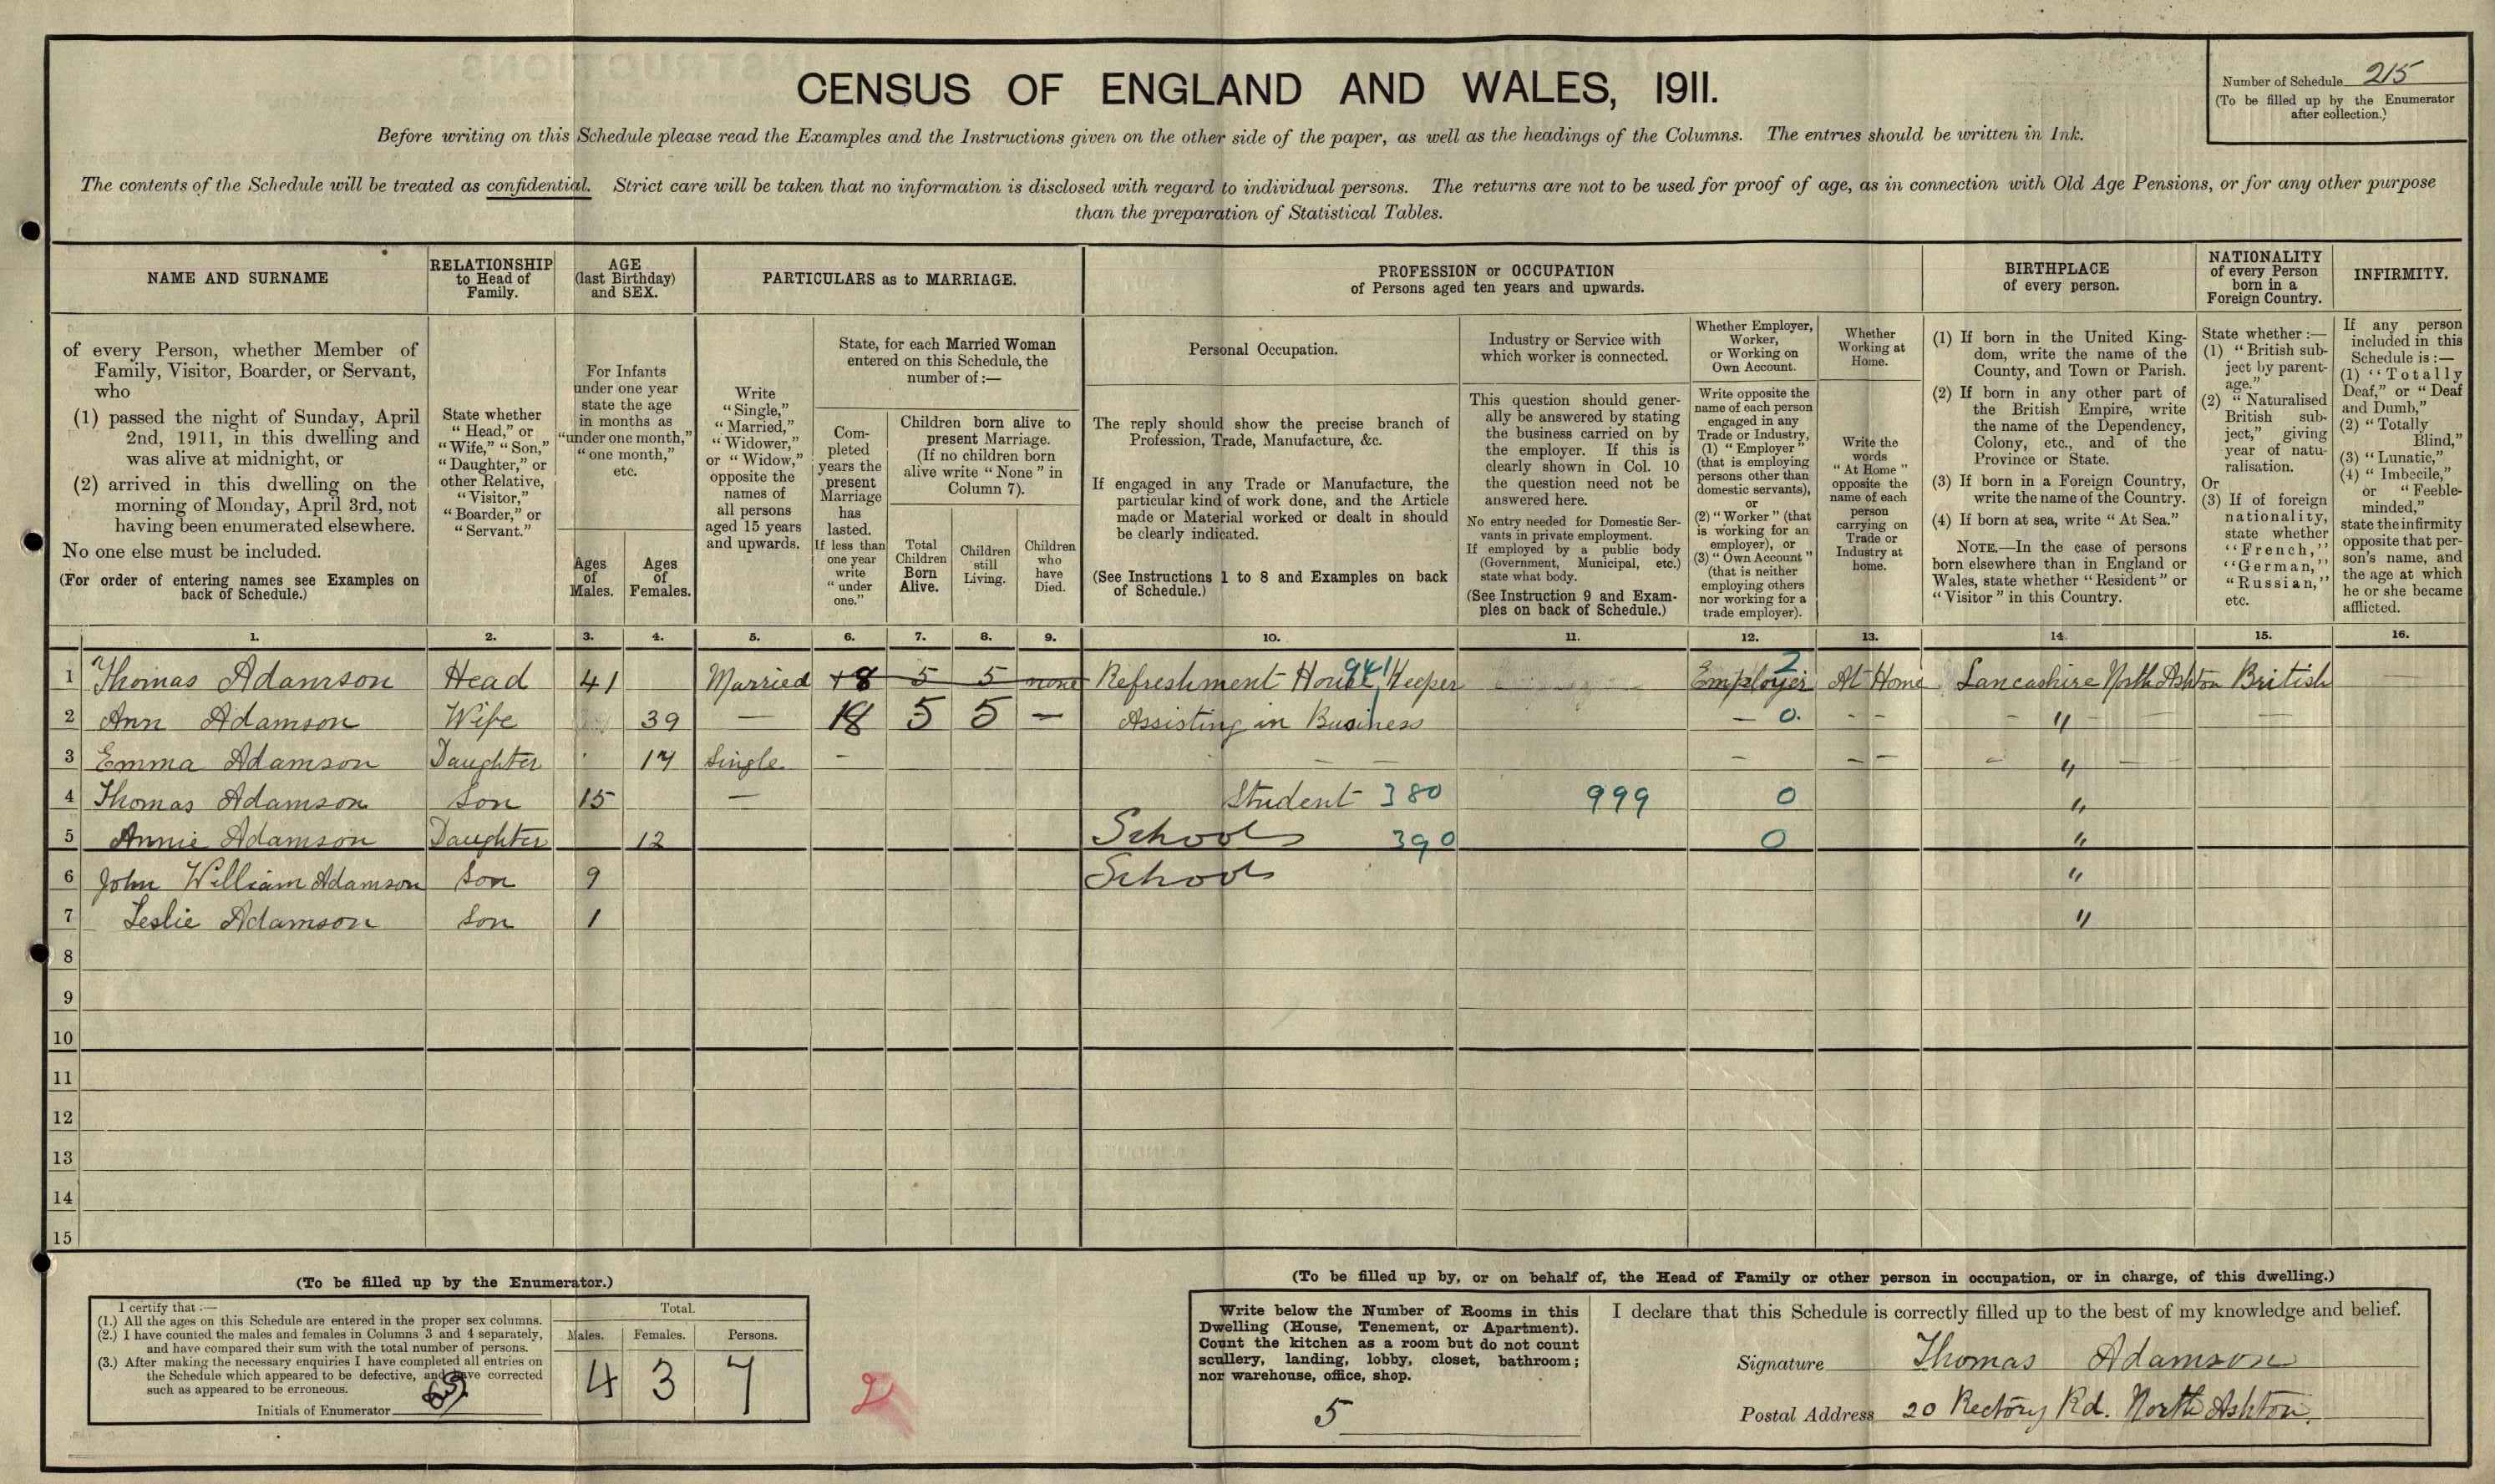 CENSUS OF ENGLAND AND WALES, 1911.
Number of Schedule 215
(To be filled up by the Enumerator
after collection.)
Before writing on this Schedule please read the Examples and the Instructions given on the other side of the paper, as well as the headings of the Columns. The entries should be written in Ink.
The contents of the Schedule will be treated as confidential. Strict care will be taken that no information is disclosed with regard to individual persons. The returns are not to be used for proof of age, as in connection with Old Age Pensions, or for any other purpose
than the preparation of Statistical Tables.
NAME AND SURNAME
of every Person, whether Member of
Family, Visitor, Boarder, or Servant,
who
(1) passed the night of Sunday, April
2nd, 1911, in this dwelling and
was alive at midnight, or
(2) arrived in this dwelling on the
morning of Monday, April 3rd, not
having been enumerated elsewhere.
No one else must be included.
(For order of entering names see Examples on
back of Schedule.)
RELATIONSHIP
to Head of
Family.
State whether
"Head," or
"Wife," "Son,"
"Daughter," or
other Relative,
"Visitor,"
"Boarder," or
"Servant."
AGE
(last Birthday)
and SEX.
For Infants
under one year
state the age
in months as
"under one month,"
"one month,"
etc.
Ages
of
Males.
Ages
of
Females.
PARTICULARS as to MARRIAGE.
Write
"Single,"
"Married,"
"Widower,"
or "Widow,"
opposite the
names of
all persons
aged 15 years
and upwards.
State, for each Married Woman
entered on this Schedule, the
number of :—
Com-
pleted
years the
present
Marriage
has
lasted.
If less than
one year
write
"under
one."
Children born alive to
present Marriage.
(If no children born
alive write "None" in
Column 7).
Total
Children
Born
Alive.
Children
still
Living.
Children
who
have
Died.
PROFESSION or OCCUPATION
of Persons aged ten years and upwards.
Personal Occupation.
The reply should show the precise branch of
Profession, Trade, Manufacture, &c.
If engaged in any Trade or Manufacture, the
particular kind of work done, and the Article
made or Material worked or dealt in should
be clearly indicated.
(See Instructions 1 to 8 and Examples on back
of Schedule.)
Industry or Service with
which worker is connected.
This question should gener-
ally be answered by stating
the business carried on by
the employer. If this is
clearly shown in Col. 10
the question need not be
answered here.
No entry needed for Domestic Ser-
vants in private employment.
If employed by a public body
(Government, Municipal, etc.)
state what body.
(See Instruction 9 and Exam-
ples on back of Schedule.)
Whether Employer,
Worker,
or Working on
Own Account.
Write opposite the
name of each person
engaged in any
Trade or Industry,
(1) "Employer"
(that is employing
persons other than
domestic servants),
or
(2) "Worker" (that
is working for an
employer), or
(3) "Own Account"
(that is neither
employing others
nor working for a
trade employer).
Whether
Working at
Home.
Write the
words
"At Home"
opposite the
name of each
person
carrying on
Trade or
Industry at
home.
BIRTHPLACE
of every person.
(1) If born in the United King-
dom, write the name of the
County, and Town or Parish.
(2) If born in any other part of
the British Empire, write
the name of the Dependency,
Colony, etc., and of the
Province or State.
(3) If born in a Foreign Country,
write the name of the Country.
(4) If born at sea, write "At Sea."
NOTE.—In the case of persons
born elsewhere than in England or
Wales, state whether "Resident" or
"Visitor" in this Country.
NATIONALITY
of every Person
born in a
Foreign Country.
State whether :—
(1) "British sub-
ject by parent-
age."
(2) "Naturalised
British sub-
ject," giving
year of natu-
ralisation.
Or
(3) If of foreign
nationality,
state whether
"French,"
"German,"
"Russian,"
etc.
INFIRMITY.
If any person
included in this
Schedule is :—
(1) "Totally
Deaf," or "Deaf
and Dumb,"
(2) "Totally
Blind,"
(3) "Lunatic,"
(4) "Imbecile,"
or "Feeble-
minded,"
state the infirmity
opposite that per-
son's name, and
the age at which
he or she became
afflicted.
1. 2. 3. 4. 5. 6. 7. 8. 9. 10. 11. 12. 13. 14. 15. 16.
1 Thomas Adamson Head 41 Married 18 5 5 none Refreshment House Keeper 941 Employer 2 At Home Lancashire North Ashton British —
2 Ann Adamson Wife 39 — 18 5 5 — Assisting in Business — 0. - - - " — —
3 Emma Adamson Daughter 17 Single - — — — — — - " —
4 Thomas Adamson Son 15 — Student 380 999 0 "
5 Annie Adamson Daughter 12 School 390 0 "
6 John William Adamson Son 9 School "
7 Leslie Adamson Son 1 "
8
9
10
11
12
13
14
15
(To be filled up by the Enumerator.)
I certify that :—
(1.) All the ages on this Schedule are entered in the proper sex columns.
(2.) I have counted the males and females in Columns 3 and 4 separately,
and have compared their sum with the total number of persons.
(3.) After making the necessary enquiries I have completed all entries on
the Schedule which appeared to be defective, and have corrected
such as appeared to be erroneous.
Initials of Enumerator
Total.
Males. Females. Persons.
4 3 7
2
(To be filled up by, or on behalf of, the Head of Family or other person in occupation, or in charge, of this dwelling.)
Write below the Number of Rooms in this
Dwelling (House, Tenement, or Apartment).
Count the kitchen as a room but do not count
scullery, landing, lobby, closet, bathroom;
nor warehouse, office, shop.
5
I declare that this Schedule is correctly filled up to the best of my knowledge and belief.
Signature Thomas Adamson
Postal Address 20 Rectory Rd. North Ashton.